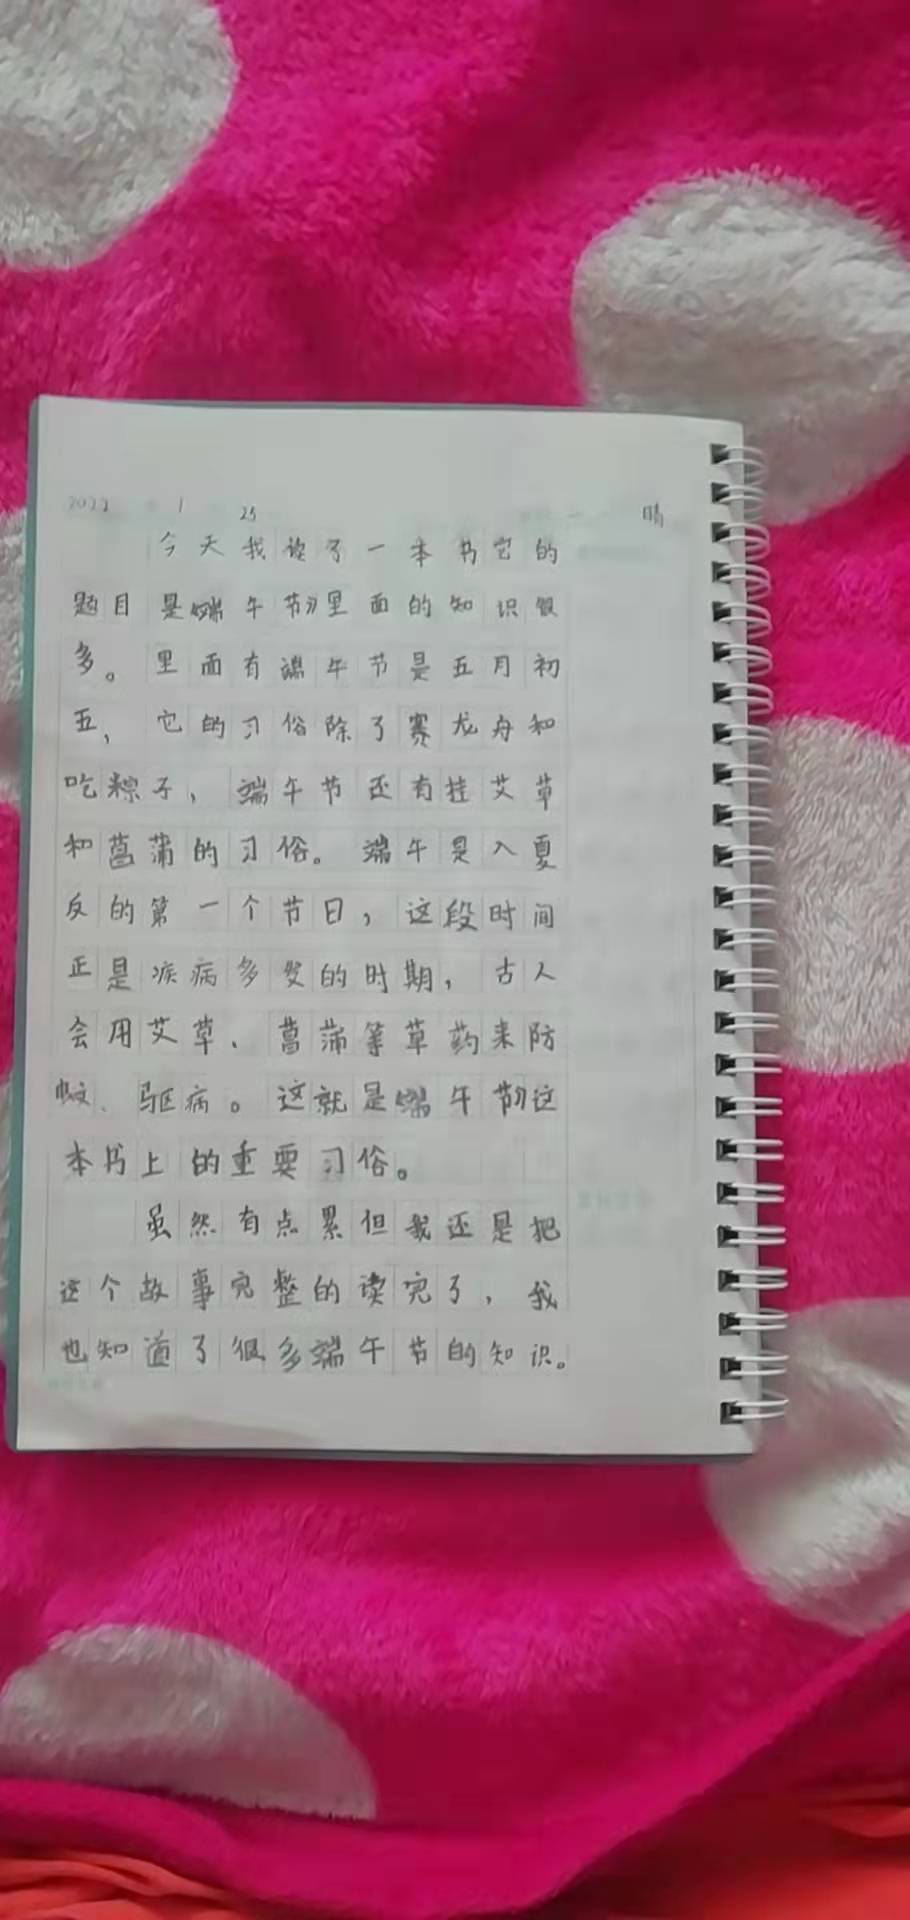 2022 1 25 晴
今天我读了一本书它的
题目是《端午节》里面的知识很
多。里面有端午节是五月初
五，它的习俗除了赛龙舟和
吃粽子，端午节还有挂艾草
和菖蒲的习俗。端午是入夏
后的第一个节日，这段时间
正是疾病多发的时期，古人
会用艾草、菖蒲等草药来防
蚊、驱病。这就是《端午节》这
本书上的重要习俗。
虽然有点累但我还是把
这个故事完整的读完了，我
也知道了很多端午节的知识。